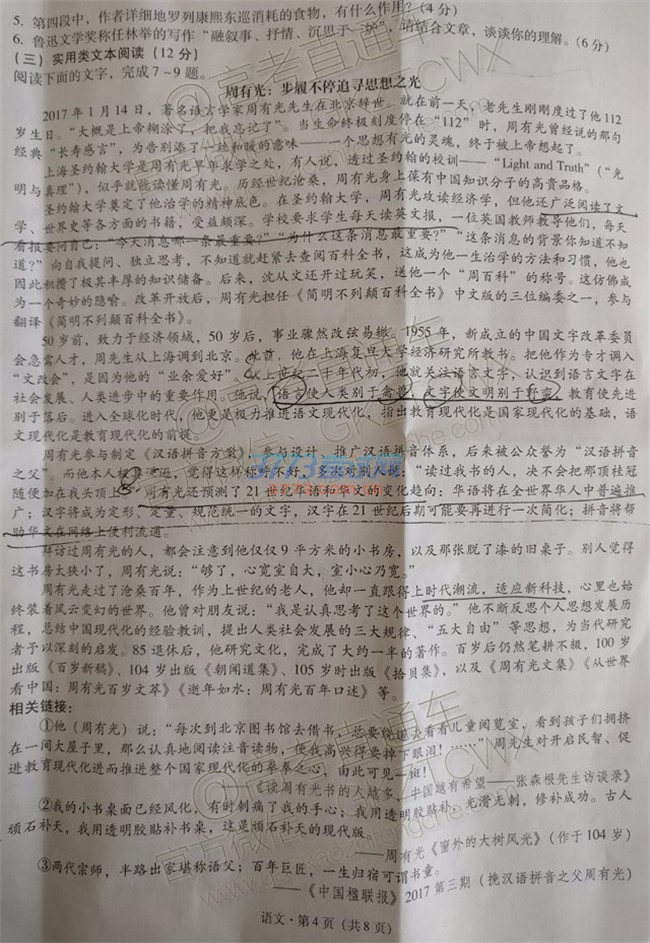 5. 第四段中，作者详细地罗列康熙东巡消耗的食物，有什么作用？(4分)
6. 鲁迅文学奖称任林举的写作“融叙事、抒情、沉思于一炉”，请结合文章，谈谈你的理解。(6分)
(三) 实用类文本阅读(12分)
阅读下面的文字，完成7～9题。
周有光：步履不停追寻思想之光
2017年1月14日，著名语言学家周有光先生在北京辞世。就在前一天，老先生刚刚度过了他112
岁生日。“大概是上帝糊涂了，把我忘记了”。当生命终极刻度停在“112”时，周有光曾经说的那句
经典“长寿感言”，为告别添了一丝和暖的意味——一个思想有光的灵魂，终于被上帝想起了。
上海圣约翰大学是周有光早年求学之处，有人说，透过圣约翰的校训——“Light and Truth”(“光
明与真理”)，似乎就能读懂周有光。历经世纪沧桑，周有光身上葆有中国知识分子的高贵品格。
圣约翰大学奠定了他治学的精神底色。在圣约翰大学，周有光攻读经济学，但他还广泛阅读了文
学、世界史等各方面的书籍，受益颇深。学校要求学生每天读英文报，一位英国教师教导他们，每天
看报要问自己：“今天消息哪一条最重要？”“为什么这条消息最重要？”“这条消息的背景你知道不知
道？”向自我提问、独立思考，不知道就赶紧去查阅百科全书，这成为他一生治学的方法和习惯，他也
因此积攒了极其丰厚的知识储备。后来，沈从文还开过玩笑，送他一个“周百科”的称号。这仿佛成
为一个奇妙的隐喻。改革开放后，周有光担任《简明不列颠百科全书》中文版的三位编委之一，参与
翻译《简明不列颠百科全书》。
50岁前，致力于经济领域，50岁后，事业骤然改弦易辙。1955年，新成立的中国文字改革委员
会急需人才，周先生从上海调到北京。此前，他在上海复旦大学经济研究所教书。把他作为专才调入
“文改会”，是因为他的“业余爱好”，从上世纪二十年代初，他就关注语言文字，认识到语言文字在
社会发展、人类进步中的重要作用。他说，语言使人类别于禽兽，文字使文明别于野蛮，教育使先进
别于落后。进入全球化时代，他更是极力推进语文现代化，指出教育现代化是国家现代化的基础，语
文现代化是教育现代化的前提。
周有光参与制定《汉语拼音方案》，参与设计、推广汉语拼音体系，后来被公众誉为“汉语拼音
之父”。而他本人极其谦逊，觉得这样称呼不好，多次对别人说：“读过我书的人，决不会把那顶桂冠
随便加在我头顶上。”周有光还预测了21世纪华语和华文的变化趋向：华语将在全世界华人中普遍推
广；汉字将成为定形、定量、规范统一的文字，汉字在21世纪后期可能要再进行一次简化；拼音将帮
助华文在网络上便利流通。
拜访过周有光的人，都会注意到他仅仅9平方米的小书房，以及那张脱了漆的旧桌子。别人觉得
这书房太狭小了，周有光说：“够了，心宽室自大，室小心乃宽。”
周有光走过了沧桑百年，作为上世纪的老人，他却一直跟得上时代潮流，适应新科技，心里也始
终装着风云变幻的世界。他曾对朋友说：“我是认真思考了这个世界的。”他不断反思个人思想发展历
程，总结中国现代化的经验教训，提出人类社会发展的三大规律、“五大自由”等思想，为当代研究
者予以深刻的启发。85退休后，他研究文化，完成了大约一半的著作。百岁后仍然笔耕不辍，100岁
出版《百岁新稿》、104岁出版《朝闻道集》、105岁时出版《拾贝集》，以及《周有光文集》《从世界
看中国：周有光百岁文萃》《逝年如水：周有光百年口述》等。
相关链接：
①他（周有光）说：“每次到北京图书馆去借书，总要绕道去看看儿童阅览室，看到孩子们拥挤
在一间大屋里，那么认真地阅读注音读物，使我高兴得要掉下眼泪！……”周先生对开启民智、促
进教育现代化进而推进整个国家现代化的拳拳之心，由此可见一斑！
《读周有光书的人越多，中国越有希望——张森根先生访谈录》
②我的小书桌面已经风化，有时刺痛了我的手心；我用透明胶贴补，光滑光刺，修补成功。古人
顽石补天，我用透明胶贴补书桌，这是顽石补天的现代版。
——周有光《窗外的大树风光》(作于104岁)
③两代宗师，半路出家堪称语父；百年巨匠，一生归宿可谓书童。
——《中国楹联报》2017第三期（挽汉语拼音之父周有光）
语文·第4页（共8页）